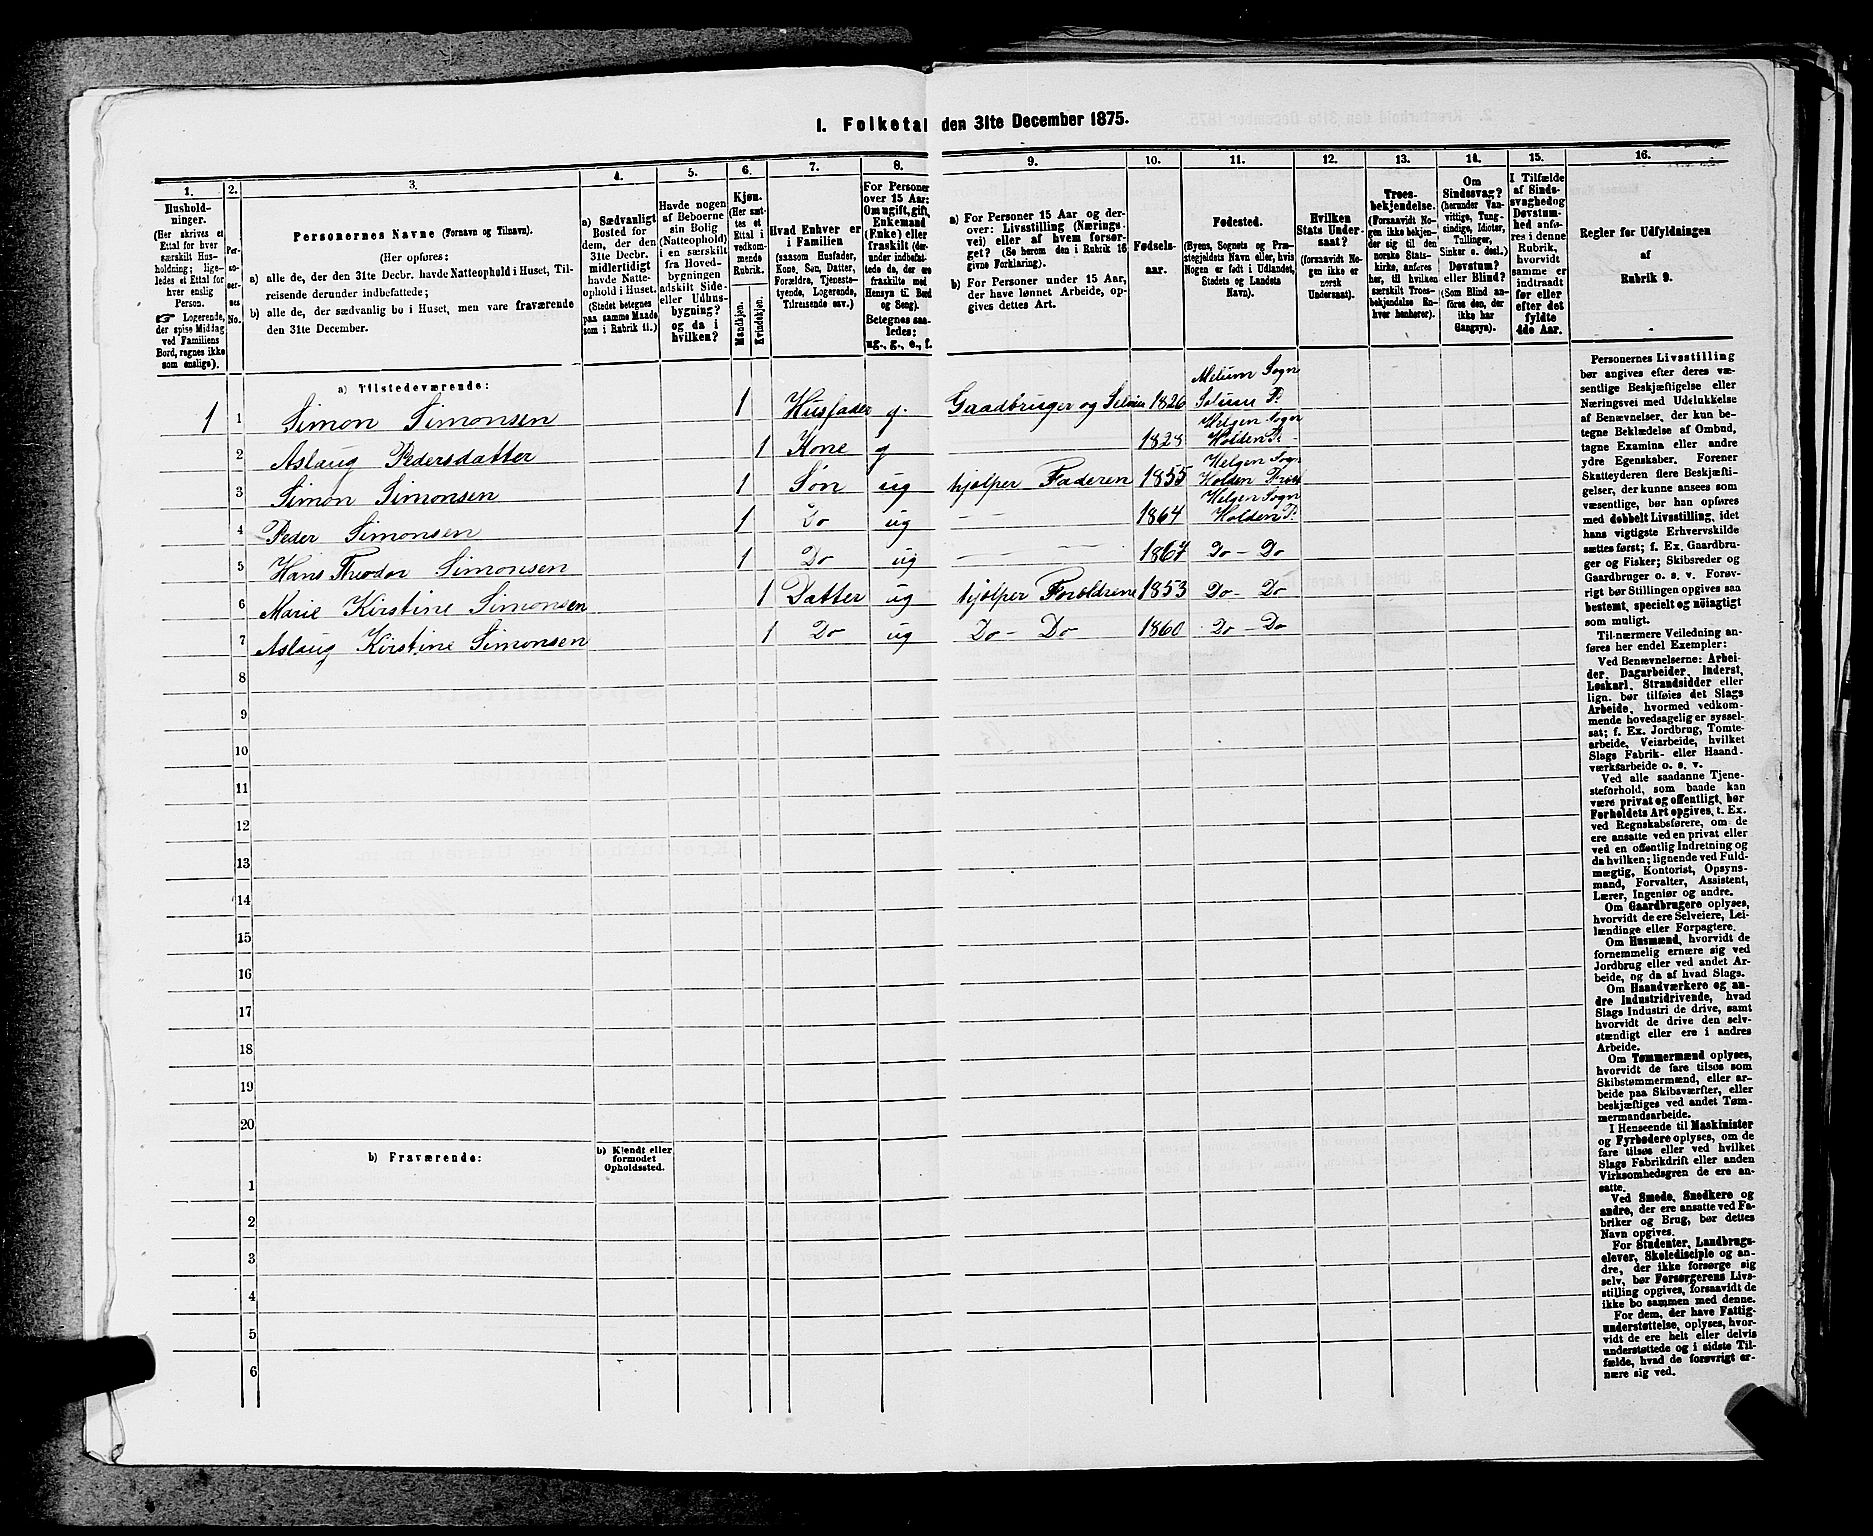 I. Folketal den 31te December 1875.
1. 2. 3. 4. 5. 6. 7. 8. 9. 10. 11. 12. 13. 14. 15. 16.
Husholdninger.
(Her skrives et
Ettal for hver
særskilt Husholdning; ligeledes et Ettal for
hver enslig
Person.
☞ Logerende,
der spise Middag
ved Familiens
Bord, regnes ikke
som enslige).
Personernes No.
Personernes Navne (Fornavn og Tilnavn).
(Her opføres:
a) alle de, der den 31te Decbr. havde Natteophold i Huset, Tilreisende derunder indbefattede;
b) alle de, der sædvanlig bo i Huset, men vare fraværende
den 31te December.
a) Sædvanligt
Bosted for
dem, der den
31te Decbr.
midlertidigt
havde Natteophold i Huset.
(Stedet betegnes
paa samme Maade
som i Rubrik 11.)
Havde nogen
af Beboerne
sin Bolig
(Natteophold)
i en særskilt
fra Hovedbygningen
adskilt Side-
eller Udhusbygning?
og da i
hvilken?
Kjøn.
(Her sættes et
Ettal i
vedkommende
Rubrik.
Mandkjøn.
Kvindekjøn.
Hvad Enhver er
i Familien
(saasom Husfader,
Kone, Søn, Datter,
Forældre, Tjenestetyende, Logerende,
Tilreisende osv.)
For Personer
over 15 Aar:
Om ugift, gift,
Enkemand
(Enke) eller
fraskilt (derunder indbefattede de, der ere
fraskilte med
Hensyn til Bord
og Seng).
Betegnes saaledes:
ug., g., e., f.
a) For Personer 15 Aar og derover: Livsstilling (Næringsvei) eller af hvem forsørget? (Se herom den i Rubrik 16
givne Forklaring).
b) For Personer under 15 Aar,
der have lønnet Arbeide, opgives dettes Art.
Fødselsaar.
Fødested.
(Byens, Sognets og Præstegjeldets Navn eller, hvis
Nogen er født i Udlandet,
Stedets og Landets
Navn).
Hvilken
Stats Undersaat?
(forsaavidt Nogen ikke er
norsk
Undersaat).
Troesbekjendelse.
(Forsaavidt Nogen ikke bekjender sig til den
norske Statskirke, anføres
her, til hvilken
særskilt Troesbekjendelse Enhver henhører).
Om
Sindssvag?
(herunder Vanvittige, Tungsindige, Idioter,
Tullinger,
Sinker o. desl.)
Døvstum?
eller Blind?
(Som Blind anføres den, der
ikke har
Gangsyn).
I Tilfælde
af Sindssvaghed og
Døvstumhed anføres i denne
Rubrik,
hvorvidt
samme er
indtraadt
før eller
efter det
fyldte
4de Aar.
Regler for Udfyldningen
af
Rubrik 9.
a) Tilstedeværende:
1 1 Simon Simonsen 1 Husfader g. Gaadbruger og Selveier 1826 Melum Sogn Solum P.
2 Aslaug Pedersdatter 1 Kone g 1828 Helgen Sogn Holden P.
3 Simon Simonsen 1 Søn ug hjølper Faderen 1855 Helgen Sogn Holden
4 Peder Simonsen 1 Do ug — — 1864 Helgen Sogn Holden P.
5 Hans Theodor Simonsen 1 Do ug — — — 1867 Do — Do
6 Marie Kirstine Simonsen 1 Datter ug hjølper Foroldrene 1853 Do — Do
7 Aslaug Kirstine Simonsen 1 Do ug Do — Do 1860 Do — Do
8
9
10
11
12
13
14
15
16
17
18
19
20
b) Fraværende:
b) Kjendt eller
formodet
Opholdssted.
1
2
3
4
5
6
Personernes Livsstilling
bør angives efter deres væsentlige Beskjæftigelse eller
Næringsvei med Udelukkelse
af Benævnelser, der kun betegne Beklædelse af Ombud,
tagne Examina eller andre
ydre Egenskaber. Forener
Skatteyderen flere Beskjæftigelser, der kunne ansees som
væsentlige, bør han opføres
med dobbelt Livsstilling, idet
hans vigtigste Erhvervskilde
sættes først; f. Ex. Gaardbruger og Fisker; Skibsreder og
Gaardbruger o. s. v. Forøvrigt bør Stillingen opgives saa
bestemt, specielt og nøiagtigt
som muligt.
Til nærmere Veiledning anføres her endel Exempler:
Ved Benævnelserne: Arbeider, Dagarbeider, Inderst,
Løskarl, Strandsidder eller
lign. bør tilføies det Slags
Arbeide, hvormed vedkommende hovedsagelig er sysselsat; f. Ex. Jordbrug, Tomtearbeide, Veiarbeide, hvilket
Slags Fabrik- eller Haandværksarbeide o. s. v.
Ved alle saadanne Tjenesteforhold, som baade kan
være privat og offentligt, bør
Forholdets Art opgives, t. Ex.
ved Regnskabsførere, om de
ere ansatte ved en privat eller
ved en offentlig Indretning og
da hvilken; lignende ved Fuldmægtig, Kontorist, Opsynsmand, Forvalter, Assistent,
Lærer, Ingeniør og andre.
Om Gaardbrugere oplyses,
hvorvidt de ere Selveiere, Leilændinge eller Forpagtere.
Om Husmænd, hvorvidt de
fornemmelig ernære sig ved
Jordbrug eller ved andet Arbeide, og da af hvad Slags.
Om Haandværkere og andre Industridrivende, hvad
Slags Industri de drive, samt
hvorvidt de drive den selvstændigt eller ere i andres
Arbeide.
Om Tømmermænd oplyses,
hvorvidt de fare tilsøs som
Skibstømmermænd, eller arbeide paa Skibsværfter, eller
beskjæftiges ved andet Tømmermandsarbeide.
I Henseende til Maskinister
og Fyrbødere oplyses, om de
fare tilsøs eller ved hvilket
Slags Fabrikdrift eller anden
Virksomhedsgren de ere ansatte.
Ved Smede, Snedkere og
andre, der ere ansatte ved Fabriker og Brug, bør dettes
Navn opgives.
For Studenter, Landbrugselever, Skoledisciple og andre, der ikke forsørge sig
selv, bør Forsørgerens Livsstilling opgives, forsaavidt de
ikke bo sammen med denne.
For dem, der have Fattigunderstøttelse, oplyses, hvorvidt de ere helt eller delvis
understøttede og i sidste Tilfælde, hvad de forøvrigt ernære sig ved.